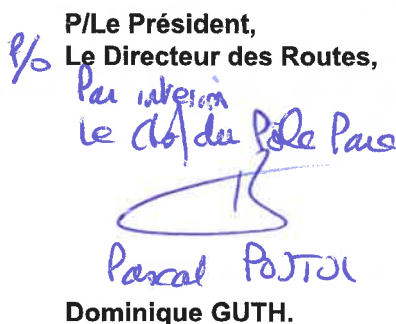 P/Le Président,
P/o Le Directeur des Routes,
Par interim
Le chef du Pôle Parc
Pascal
Dominique GUTH.